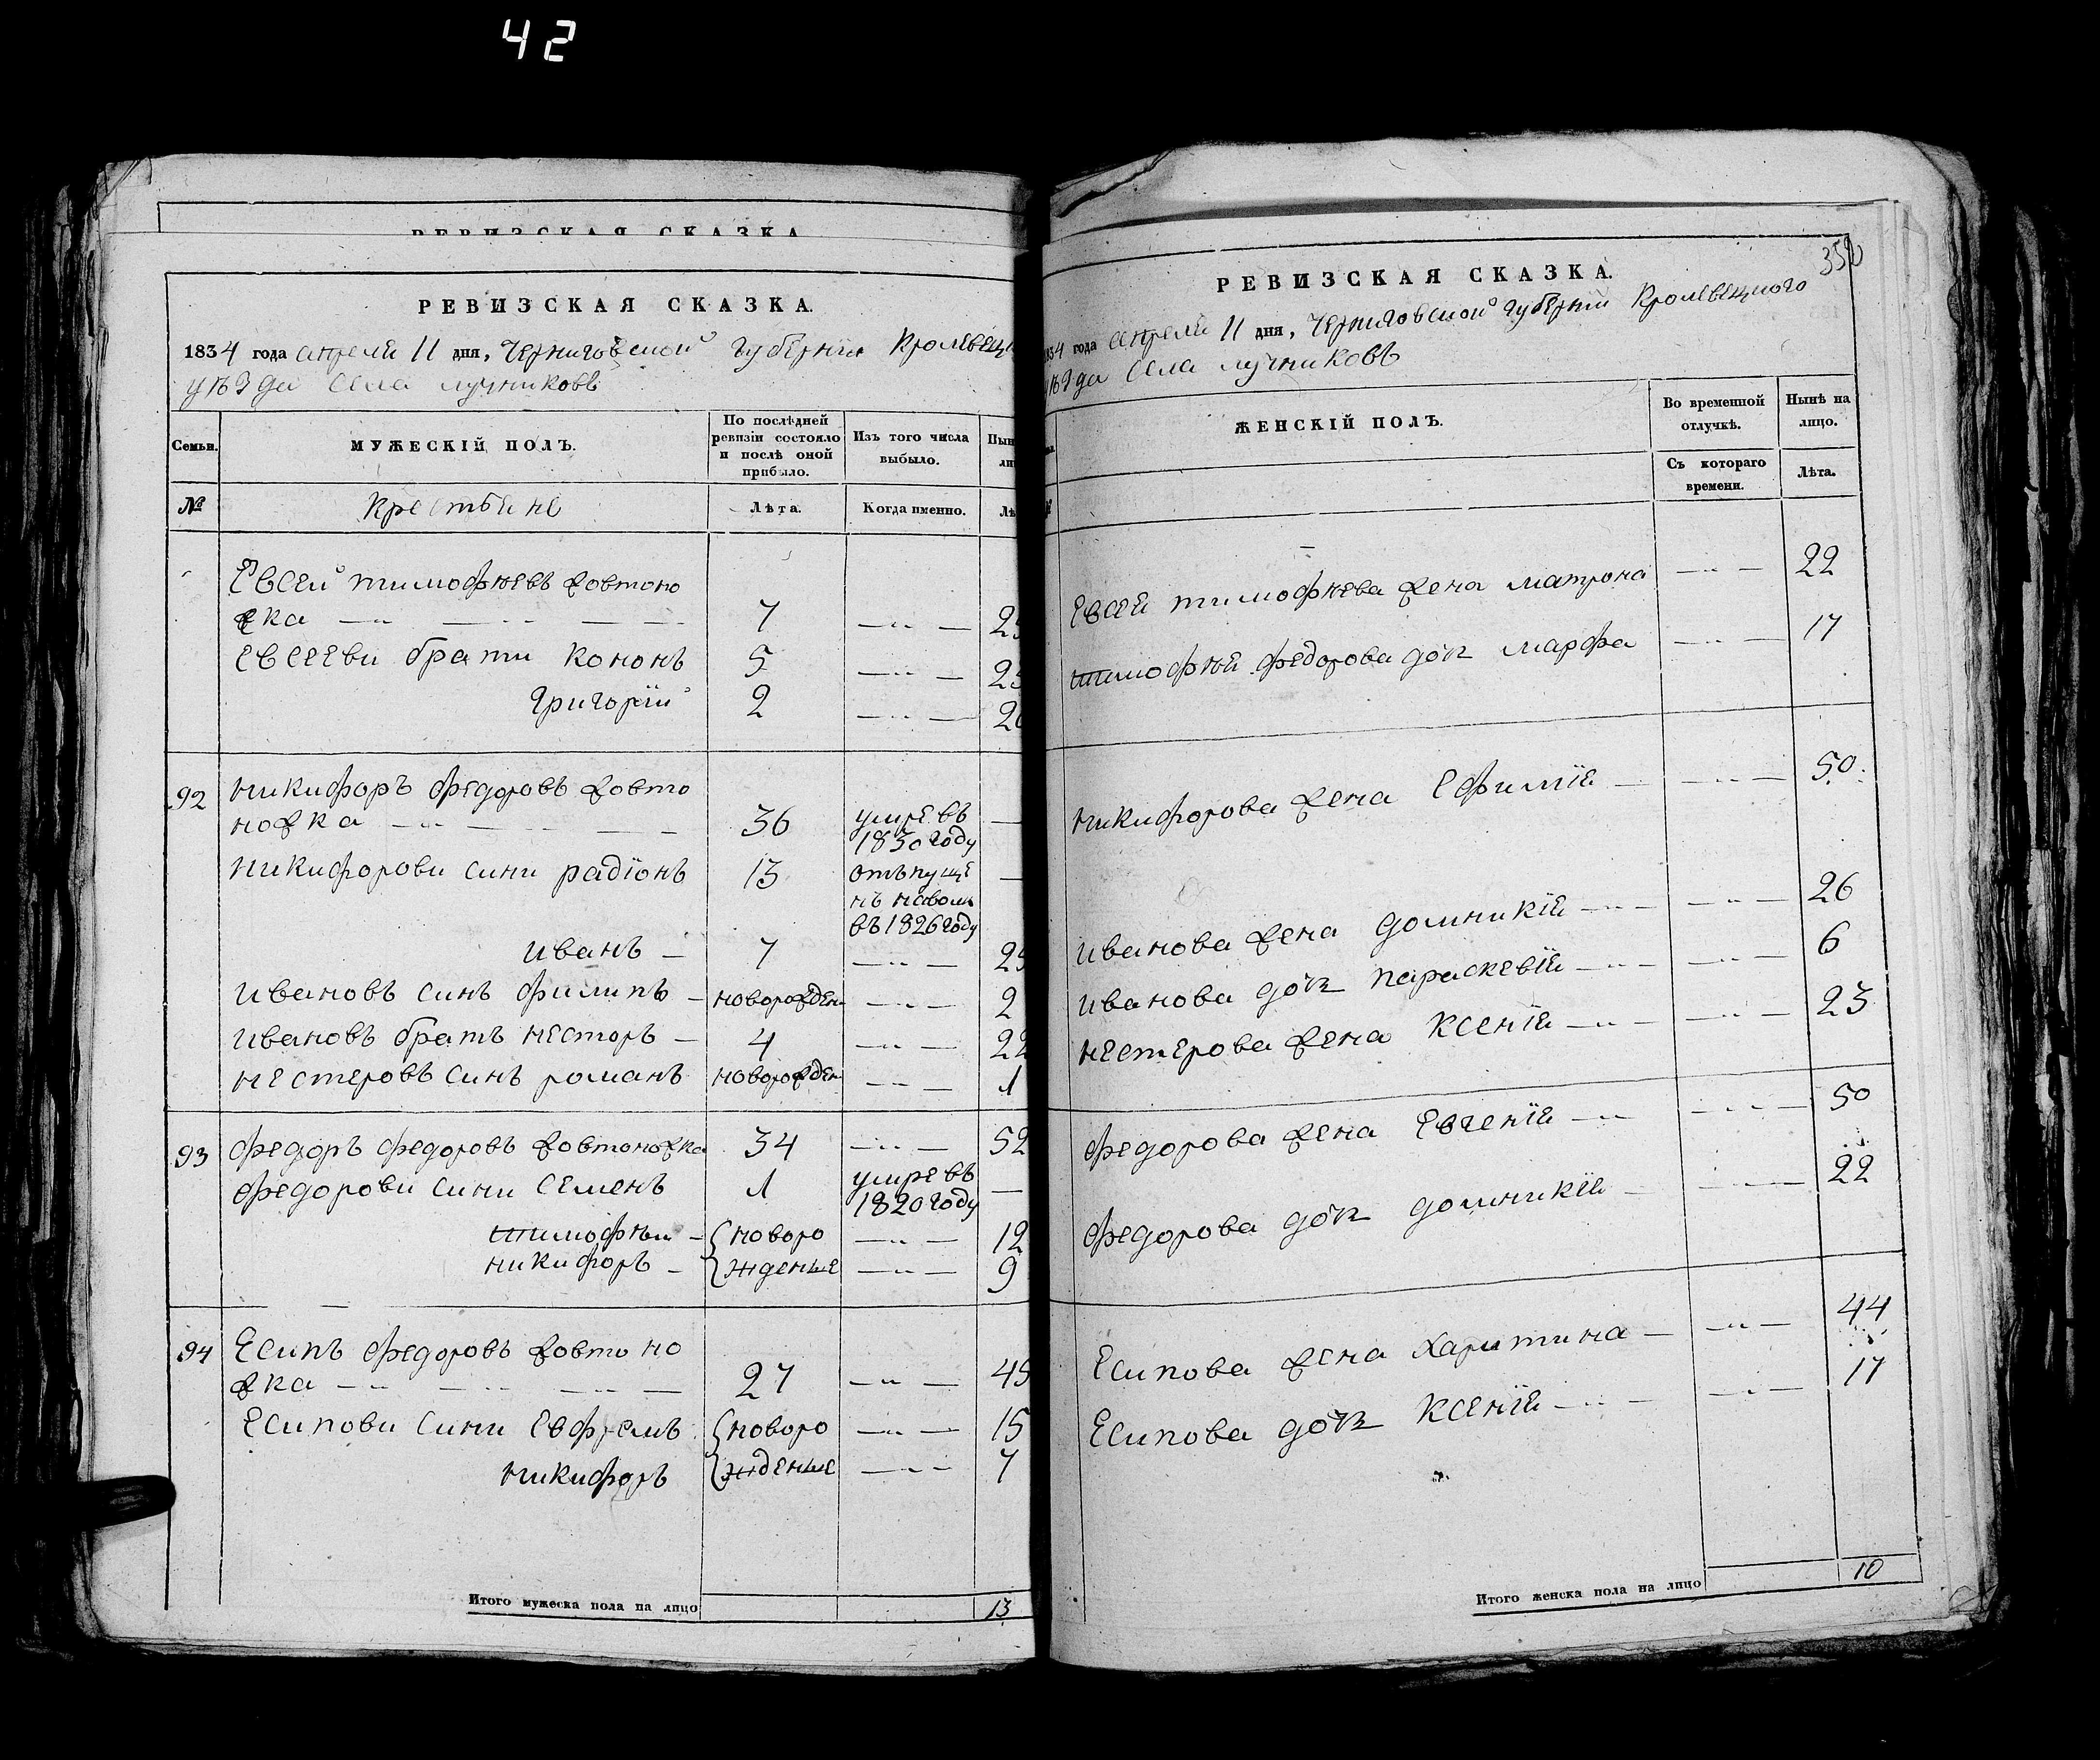 42
РЕВИЗСКАЯ СКАЗКА
РЕВИЗСКАЯ СКАЗКА.
1834 года апреля 11 дня, Черниговской губернии Кролевец
уѣзда села лучниковъ
Семьи.
МУЖЕСКІЙ ПОЛЪ.
По послѣдней ревизіи состояло и послѣ оной прибыло.
Изъ того числа выбыло.
№
Крестьяне
Лѣта.
Когда именно.
Евсей тимофѣевъ жовтоно
жка 7
Евсееви брати кононъ 5
григорій 2
92 никифоръ федоровъ жовто
ножка 36 умре въ
1830 году
никифорови сини радіонъ 13 отъпуще
нъ наволю
въ 1826 году
иванъ 7
ивановъ синъ филипъ новорожден 2
ивановъ братъ несторъ 4 22
нестеровъ синъ романъ новорожден 1
93 федоръ федоровъ жовтоножка 34 52
федорови сини семенъ 1 умре въ
1820 году
тимофѣй новоро 12
никифоръ жденые 9
94 Есипъ федоровъ жовтоно
жка 27 49
Есипови сини Евфремъ новоро 15
никифоръ жденые 7
Итого мужеска пола на лицо 13
РЕВИЗСКАЯ СКАЗКА.
1834 года апреля 11 дня, Черниговской губерніи Кролевецкого
уѣзда села лучниковъ
ЖЕНСКІЙ ПОЛЪ.
Во временной отлучкѣ.
Нынѣ на лицо.
Съ котораго времени.
Лѣта.
Евсея тимофѣева жена матрона 22
тимофѣя федорова доч марфа 17
никифорова жена Ефимія 50
иванова жена домникія 26
иванова доч параскевія 6
нестерова жена ксенія 23
федорова жена Евгенія 50
федорова доч домникія 22
Есипова жена харитина 44
Есипова доч ксенія 17
Итого женска пола на лицо 10